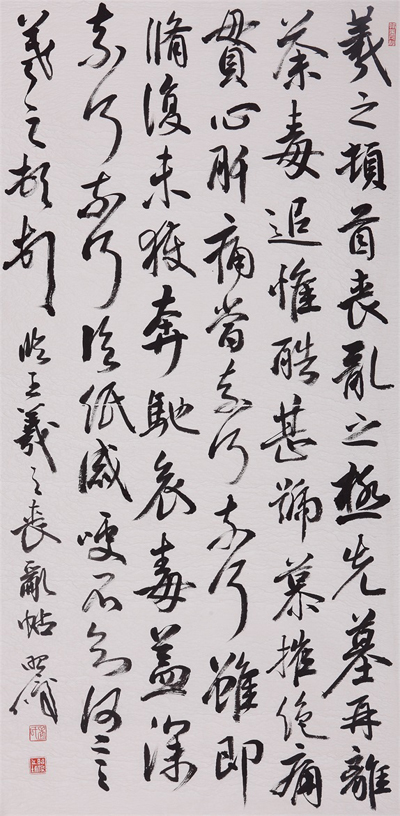 羲之頓首喪亂之極先墓再離
荼毒追惟酷甚號慕摧絕痛
貫心肝痛當奈何奈何雖即
脩復未獲奔馳哀毒益深
奈何奈何臨紙感哽不知何言
羲之頓首 臨王羲之喪亂帖